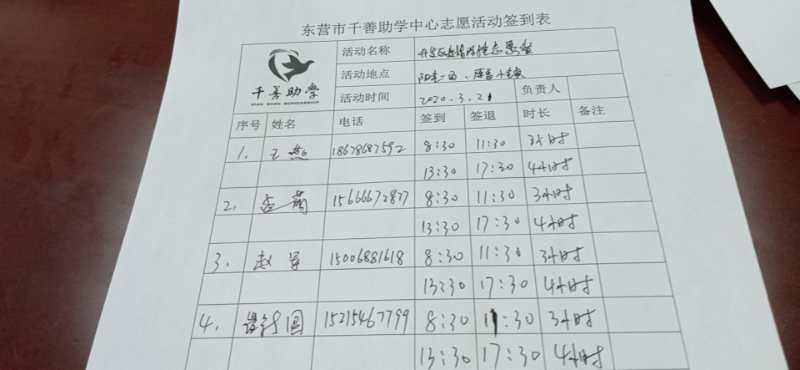 东营市千善助学中心志愿活动签到表
千善助学
活动名称
活动地点
活动时间 2020.3.21 负责人
序号 姓名 电话 签到 签退 时长 备注
1. 王燕 18678687592 8:30 11:30 3小时
13:30 17:30 4小时
2. 15666672827 8:30 11:30 3小时
13:30 17:30 4小时
3. 赵军 15006881618 8:30 11:30 3小时
13:30 17:30 4小时
4. 国 15215467799 8:30 11:30 3小时
13:30 17:30 4小时